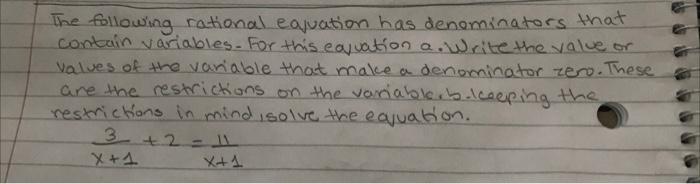 The following rational equation has denominators that
contain variables. For this equation a. Write the value or
values of the variable that make a denominator zero. These
are the restrictions on the variable. b. keeping the
restrictions in mind, solve the equation.
3/(x+1) + 2 = 11/(x+1)